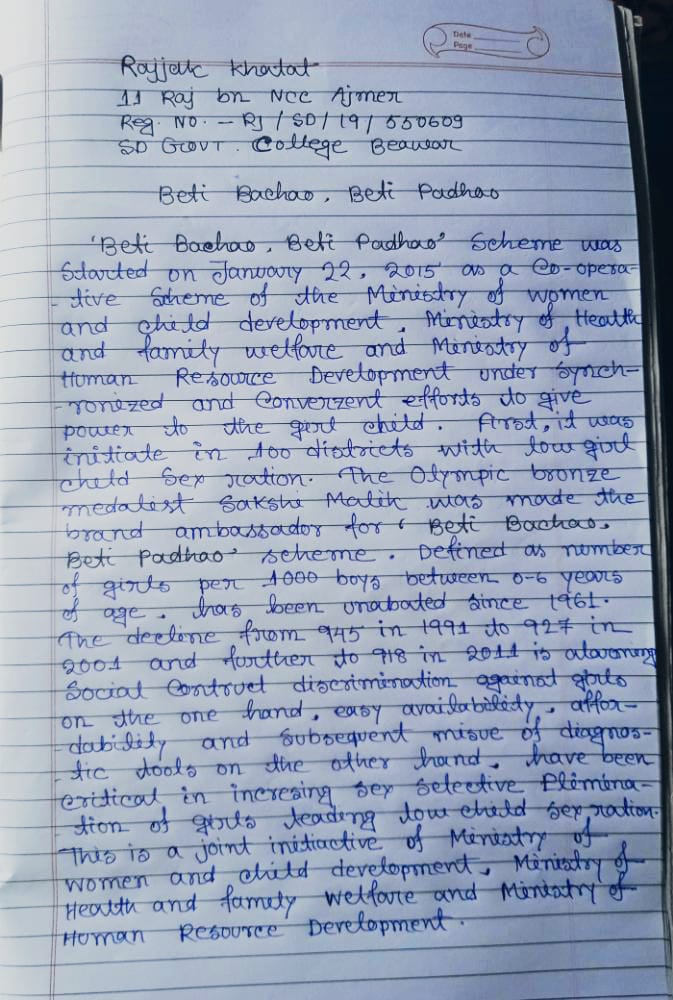 Date
Page
Rajjak Khatat
11 Raj bn NCC Ajmer
Reg. NO. - RJ / SD / 19 / 550609
SD GOVT. College Beawar
Beti Bachao, Beti Padhao
'Beti Bachao, Beti Padhao' Scheme was
Started on January 22, 2015 as a Co-opera-
-tive Scheme of the Ministry of women
and child development, Ministry of Health
and family welfare and Ministry of
Human Resource Development under synch-
-ronized and Converzent efforts to give
power to the girl child. First, it was
initiate in 100 districts with low girl
child sex ration. The Olympic bronze
medalist Sakshi Malik was made the
brand ambassador for 'Beti Bachao,
Beti Padhao' scheme. Defined as number
of girls per 1000 boys between 0-6 years
of age, has been unabated since 1961.
The decline from 945 in 1991 to 927 in
2001 and further to 918 in 2011 is alavming
Social Contruct discrimination against girls
on the one hand, easy availability, affor-
-dability and subsequent misue of diagnos-
-tic tools on the other hand, have been
critical in incresing sex selective Elimina-
-tion of girls leading low child sex ration.
This is a joint initiactive of Ministry of
women and child development, Ministry of
Health and family welfare and Ministry of
Human Resource Development.